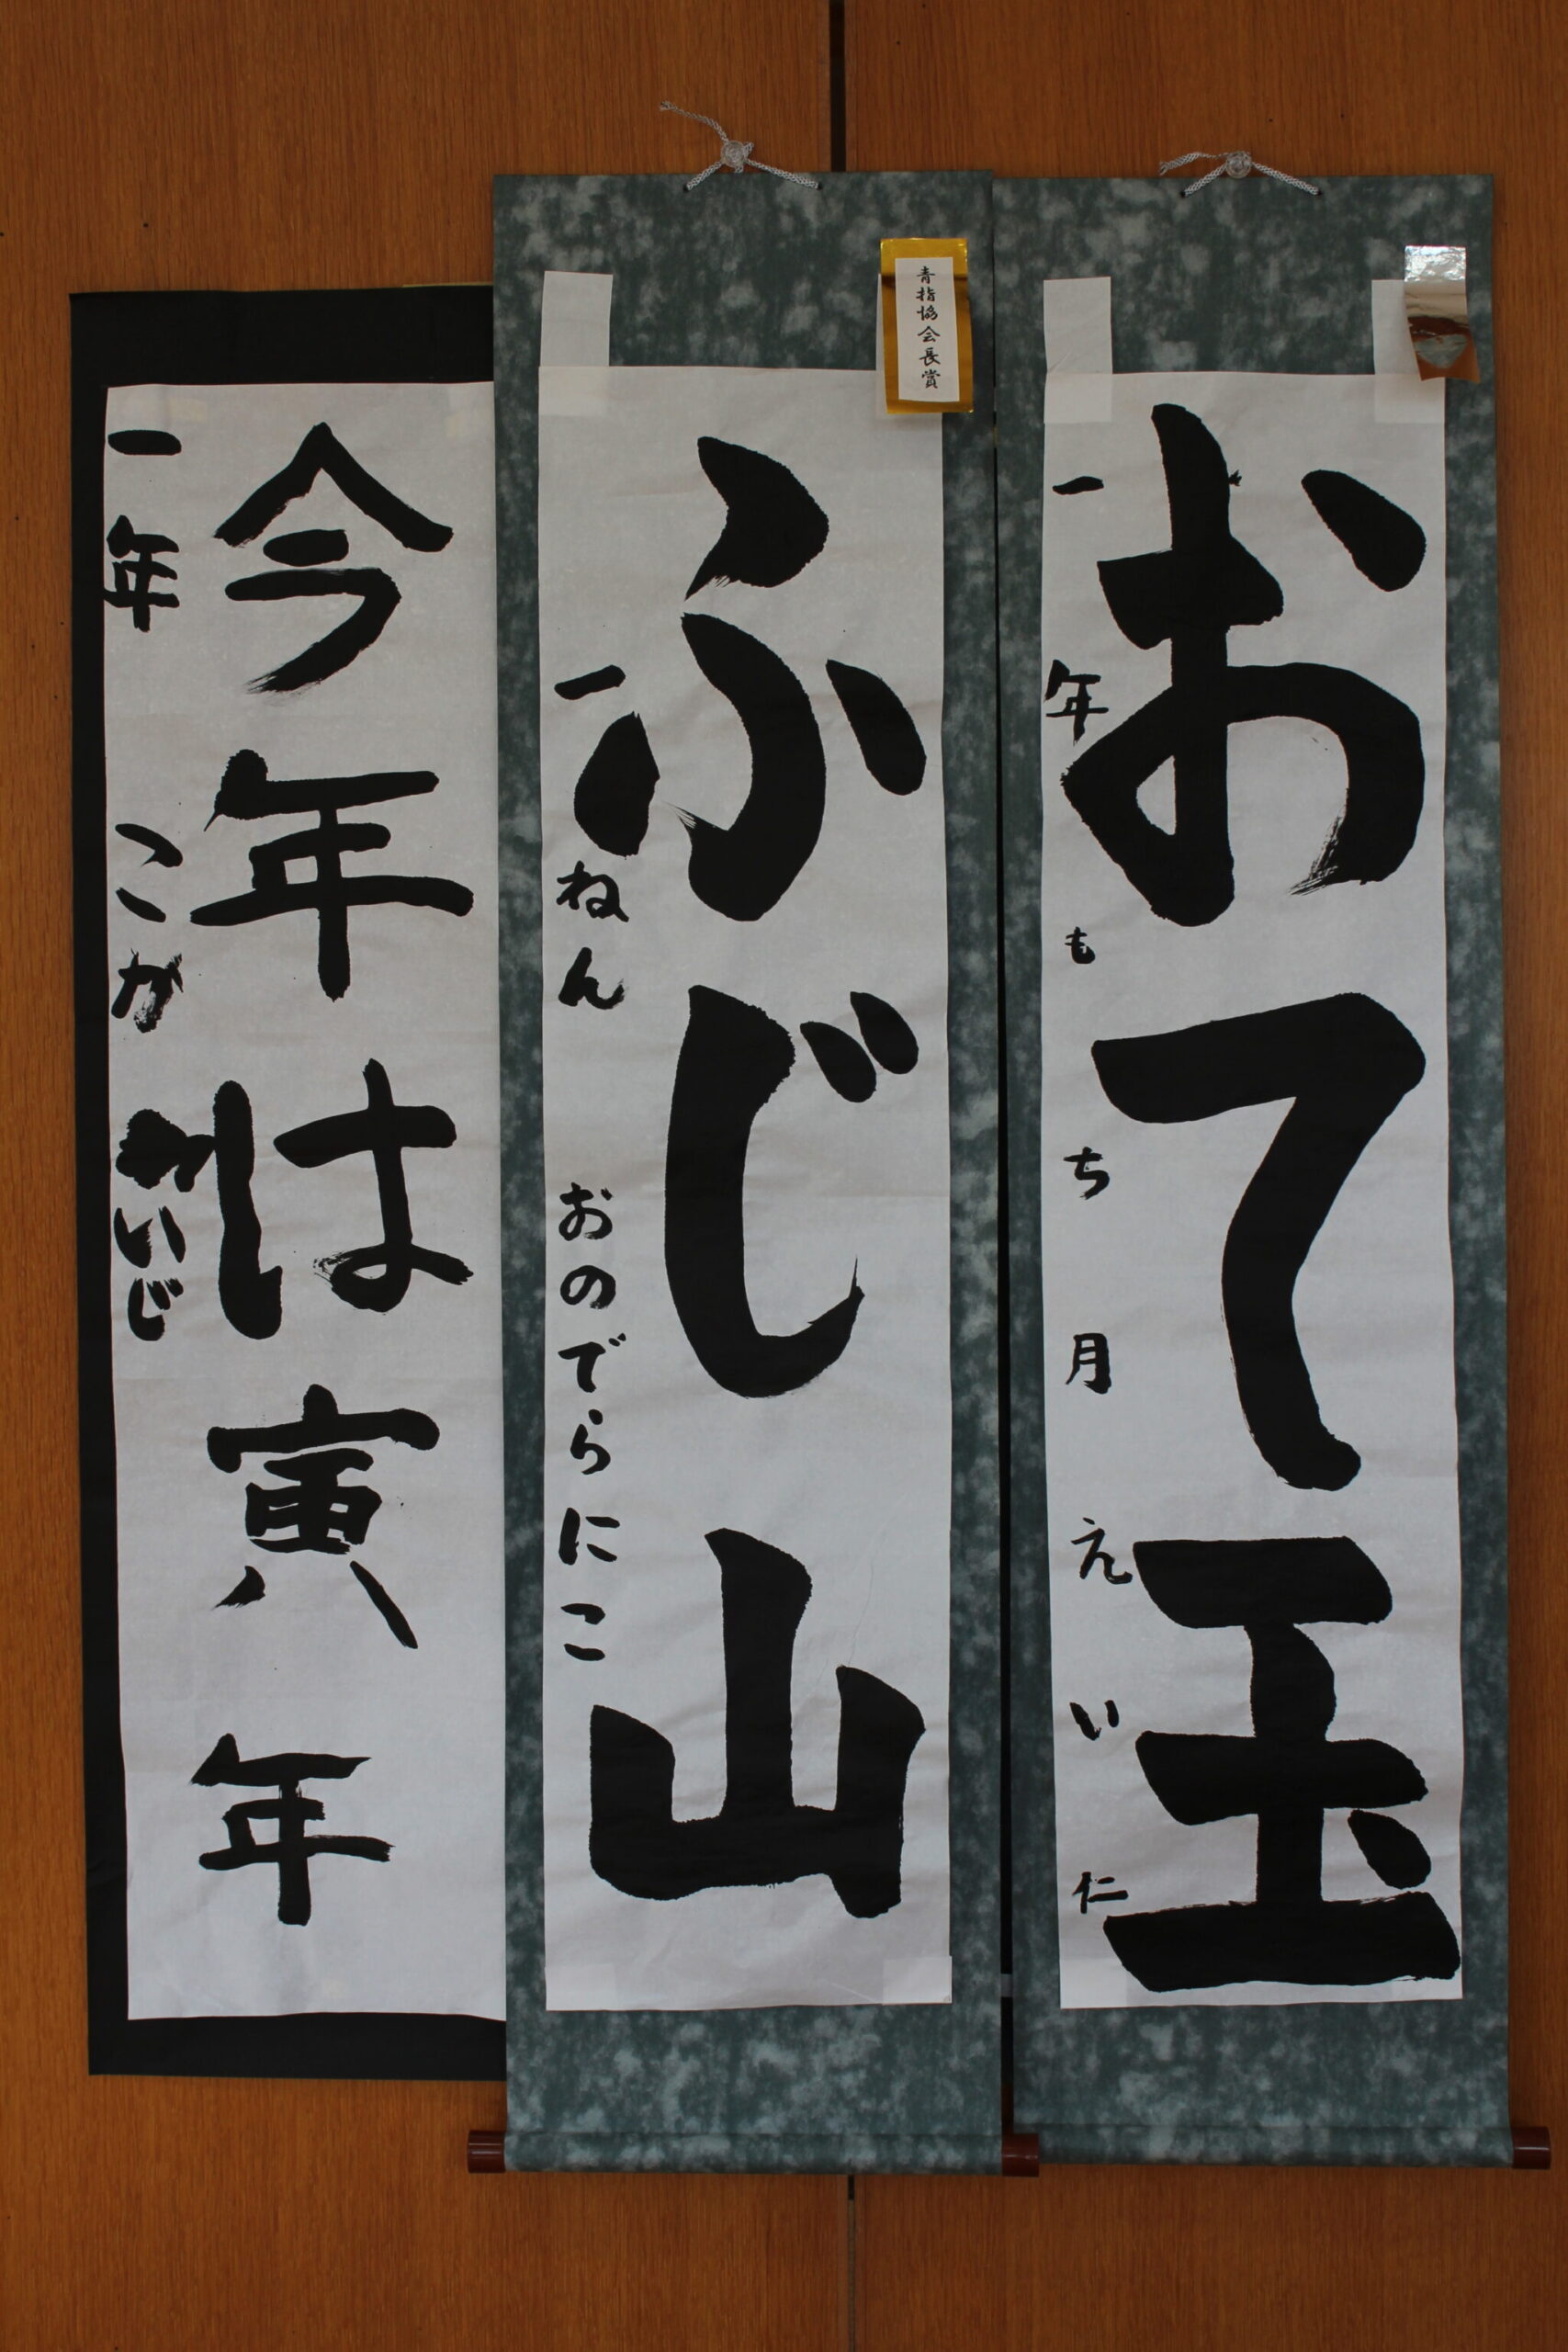 おて玉
一年 もち月えい仁
青指協会長賞
ふじ山
一ねん おのでらにこ
今年は寅年
一年 こが いじ